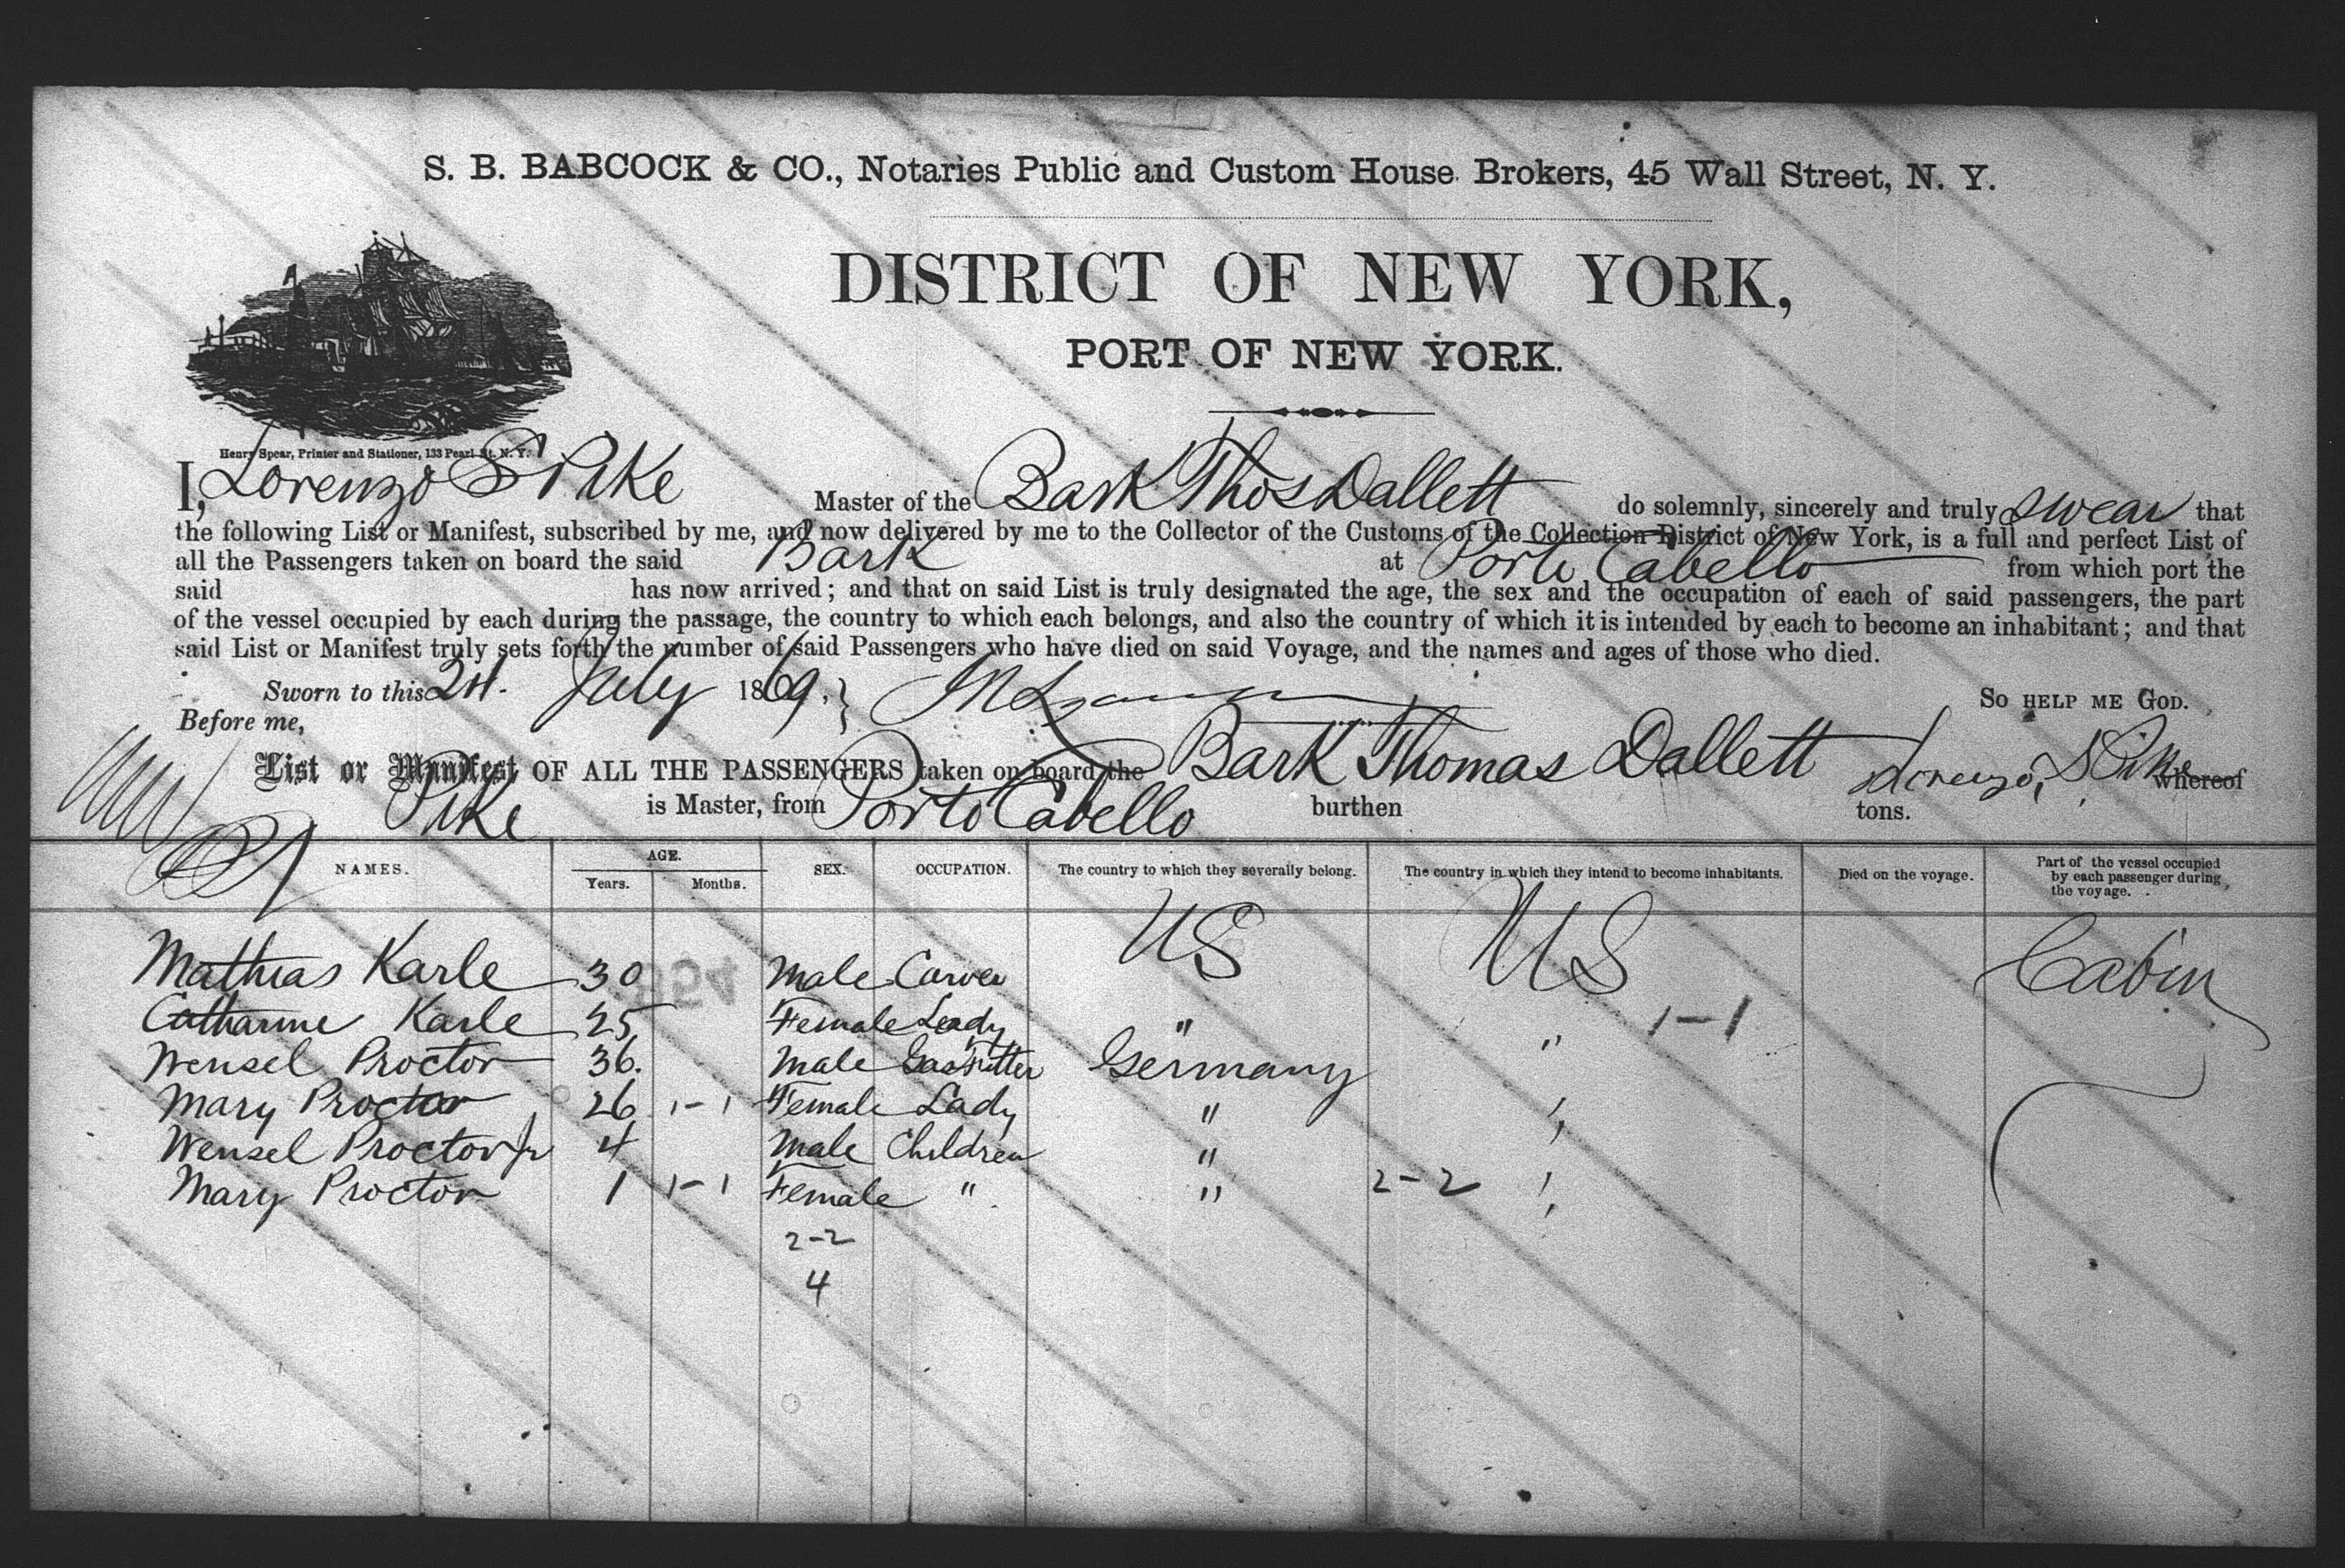 S. B. BABCOCK & CO., Notaries Public and Custom House Brokers, 45 Wall Street, N. Y.
DISTRICT OF NEW YORK,
PORT OF NEW YORK.
Henry Spear, Printer and Stationer, 133 Pearl St. N. Y.
I, Lorenzo S Pike Master of the Bark Thos Dallett do solemnly, sincerely and truly swear that
the following List or Manifest, subscribed by me, and now delivered by me to the Collector of the Customs of the Collection District of New York, is a full and perfect List of
all the Passengers taken on board the said Bark at Porto Cabello from which port the
said has now arrived; and that on said List is truly designated the age, the sex and the occupation of each of said passengers, the part
of the vessel occupied by each during the passage, the country to which each belongs, and also the country of which it is intended by each to become an inhabitant; and that
said List or Manifest truly sets forth the number of said Passengers who have died on said Voyage, and the names and ages of those who died.
Sworn to this 21st. July 1869. So HELP ME GOD.
Before me,
List or Manifest OF ALL THE PASSENGERS taken on board the Bark Thomas Dallett Lorenzo, S Pike whereof
Pike is Master, from Porto Cabello burthen tons.
NAMES. AGE. Years. Months. SEX. OCCUPATION. The country to which they severally belong. The country in which they intend to become inhabitants. Died on the voyage. Part of the vessel occupied by each passenger during the voyage.
Mathias Karle 30 Male Carver US US Cabin
Catharine Karle 25 Female Lady " " 1-1
Wensel Proctor 36. Male Gasfitter Germany "
Mary Proctor 26 1-1 Female Lady " "
Wensel Proctor Jr 4 Male Children "
Mary Proctor 1 1-1 Female " " 2-2 "
2-2
4